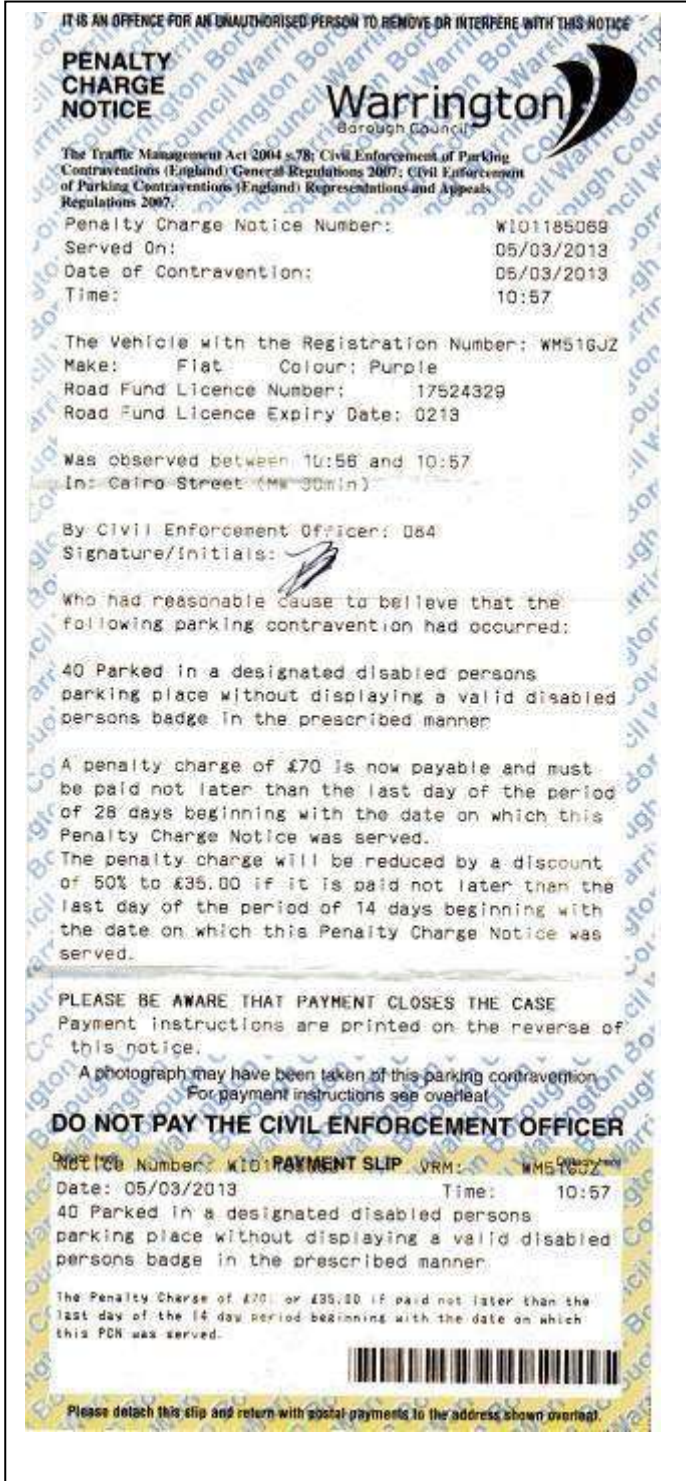 IT IS AN OFFENCE FOR AN UNAUTHORISED PERSON TO REMOVE OR INTERFERE WITH THIS NOTICE
PENALTY
CHARGE
NOTICE
Warrington
Borough Council
The Traffic Management Act 2004 s.78; Civil Enforcement of Parking
Contraventions (England) General Regulations 2007; Civil Enforcement
of Parking Contraventions (England) Representations and Appeals
Regulations 2007.
Penalty Charge Notice Number: WI01185069
Served On: 05/03/2013
Date of Contravention: 05/03/2013
Time: 10:57
The Vehicle with the Registration Number: WM51GJZ
Make: Fiat Colour: Purple
Road Fund Licence Number: 17524329
Road Fund Licence Expiry Date: 0213
Was observed between 10:56 and 10:57
In: Cairo Street (MW 30min)
By Civil Enforcement Officer: 084
Signature/Initials:
Who had reasonable cause to believe that the
following parking contravention had occurred:
40 Parked in a designated disabled persons
parking place without displaying a valid disabled
persons badge in the prescribed manner
A penalty charge of £70 is now payable and must
be paid not later than the last day of the period
of 28 days beginning with the date on which this
Penalty Charge Notice was served.
The penalty charge will be reduced by a discount
of 50% to £35.00 if it is paid not later than the
last day of the period of 14 days beginning with
the date on which this Penalty Charge Notice was
served.
PLEASE BE AWARE THAT PAYMENT CLOSES THE CASE
Payment instructions are printed on the reverse of
this notice.
A photograph may have been taken of this parking contravention
For payment instructions see overleaf
DO NOT PAY THE CIVIL ENFORCEMENT OFFICER
Notice Number: PAYMENT SLIP VRM: WM51GJZ
Date: 05/03/2013 Time: 10:57
40 Parked in a designated disabled persons
parking place without displaying a valid disabled
persons badge in the prescribed manner
The Penalty Charge of £70 or £35.00 if paid not later than the
last day of the 14 day period beginning with the date on which
this PCN was served.
Please detach this slip and return with postal payments to the address shown overleaf.